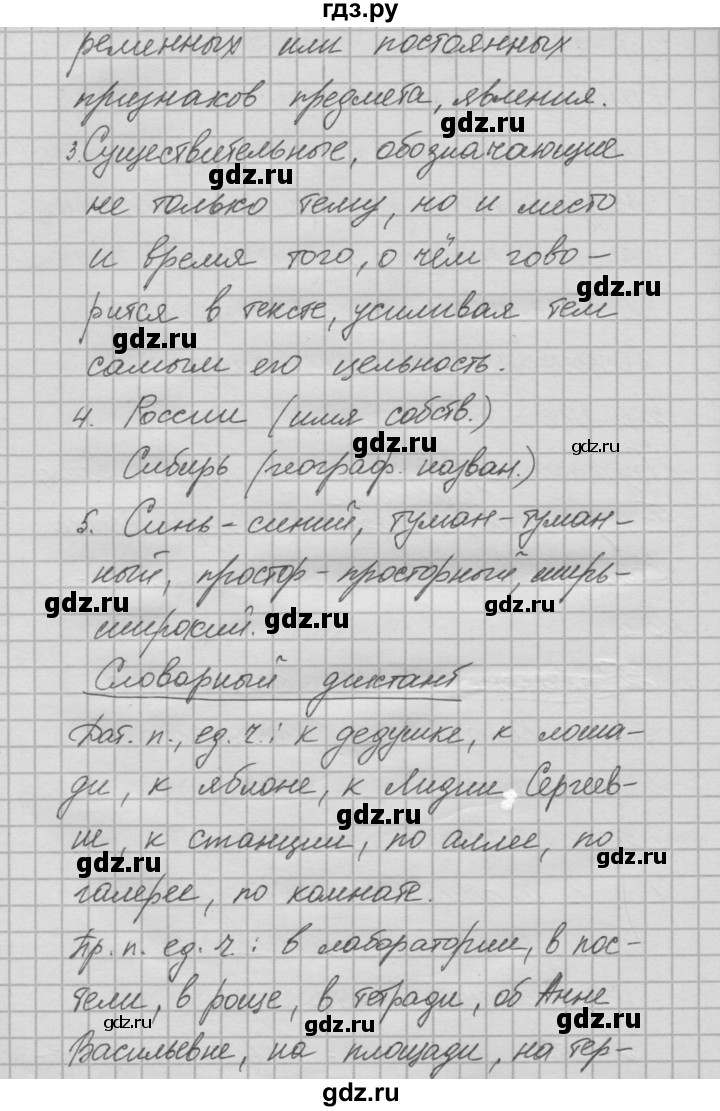 гдз.ру
ременных или постоянных
признаков предмета, явления.
gdz.ru
3. Существительные, обозначающие
gdz.ru
не только тему, но и место
и время того, о чём гово-
gdz.ru
рится в тексте, усиливая тем
gdz.ru
самым его цельность.
4. России (имя собств.)
gdz.ru gdz.ru
Сибирь (географ. назван.)
5. Синь - синий, туман - туман-
ный, простор - просторный, ширь -
gdz.ru gdz.ru gdz.ru
широкий.
Словарный диктант
Дат. п., ед. ч.: к дедушке, к лоша-
ди, к яблоне, к Лидии Сергеев-
gdz.ru
не, к станции, по аллее, по
gdz.ru gdz.ru
галерее, по комнате.
Пр. п. ед. ч.: в лаборатории, в пос-
тели, в роще, в тетради, об Анне
gdz.ru gdz.ru gdz.ru
Васильевне, на площади, на тер-
gdz.ru